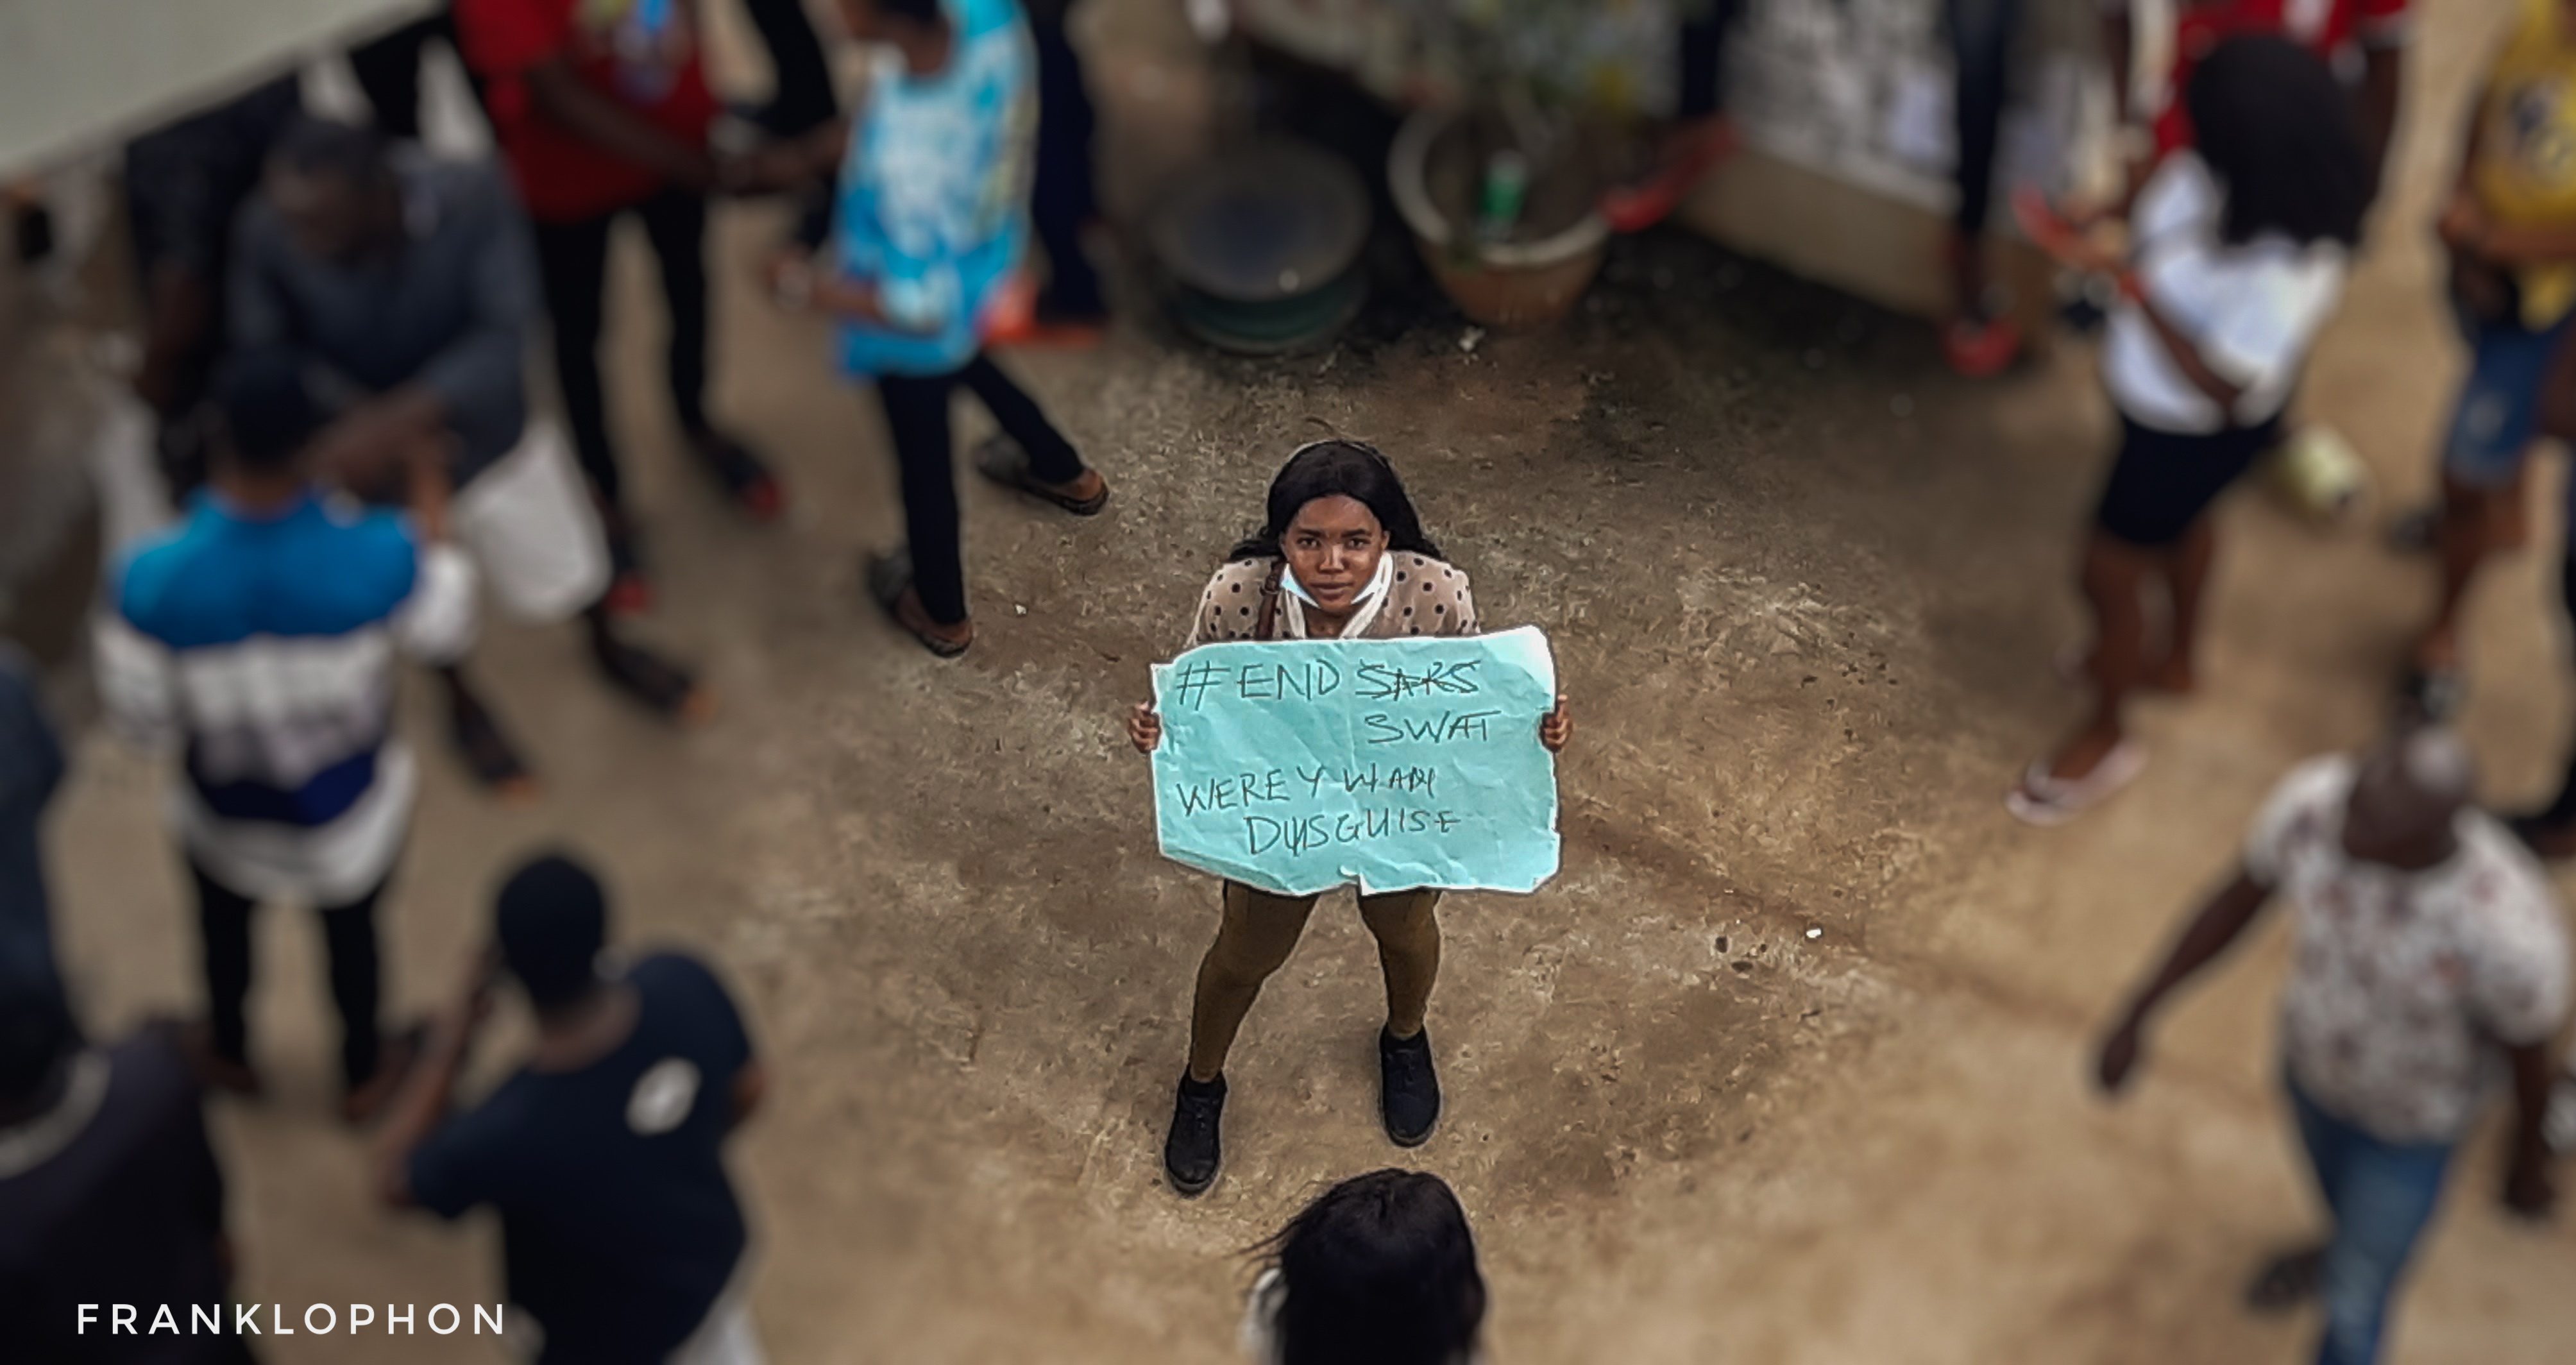 #END SARS
SWAT
WEREY WAN
DIISGUISE
FRANKLOPHON